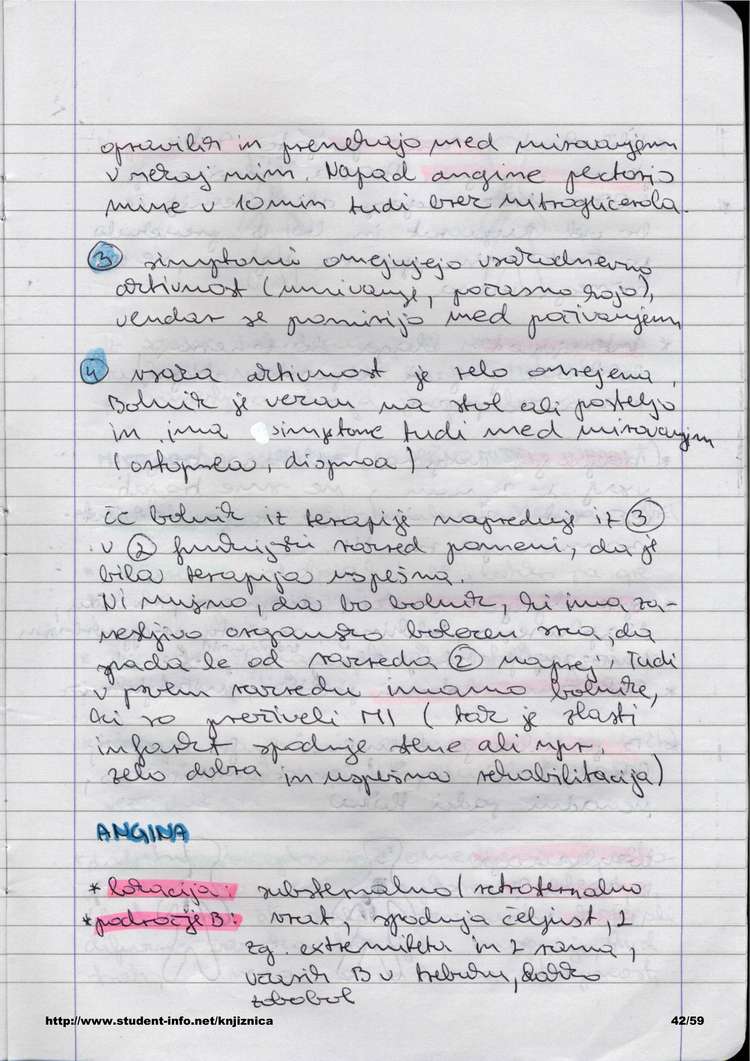 opravilih in prenehajo med mirovanjem
v nekaj minn. Napad angine pectoris
mine v 10min tudi brez nitroglicerola.
3 simptomi omejujejo vsakodnevno
aktivnost (umivanje, počasno hojo),
vendar se pomirijo med počivanjem
4 vsaka aktivnost je zelo omejena,
Bolnik je vezan na stol ali posteljo
in ima simptome tudi med mirovanjem
(ortopnea, dispnoa).
Če bolnik iz terapije napreduje iz 3
v 2 funkcijski razred pomeni, da je
bila terapija uspešna.
Ni nujno, da bo bolnik, ki ima za-
nesljivo organsko bolezen srca, da
spada le od razreda 2 naprej. Tudi
v prvem razredu imamo bolnike,
ki so preživeli MI (tak je zlasti
infarkt spodnje stene ali npr.
zelo dobra in uspešna rehabilitacija)
ANGINA
* lokacija: substernalno / retrosternalno
* področje B: vrat, spodnja čeljust, L
zg. extremiteta in L rama,
včasih B v trebuhu, lahko
zobobol
http://www.student-info.net/knjiznica
42/59